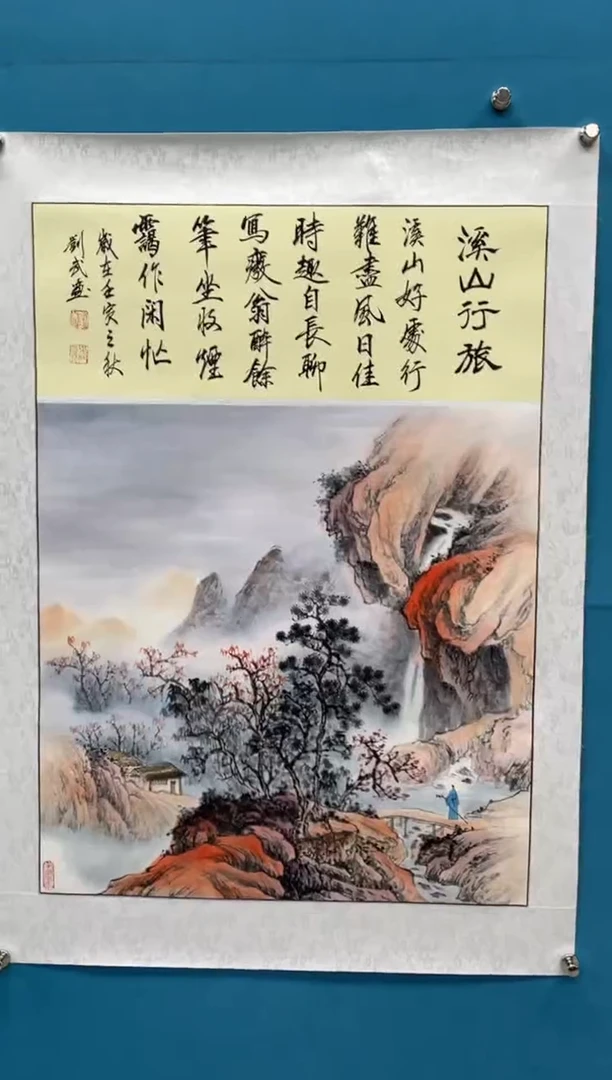 溪山行旅
溪山好處行
難盡風日佳
時趣自長聊
寫癡翁醉餘
筆坐收煙
靄作閑忙
歲在壬寅之秋
劉武画